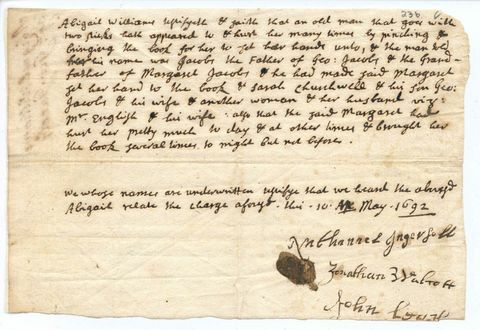 236
Abigail Williams testifyeth & saith that an old man that goes with
two sticks hath appeared to & hurt her many times by pinching &
bringing the book for her to set her hand unto, & the man told
her his name was Jacobs the Father of Geo: Jacobs & the Grand-
father of Margaret Jacobs & he had made said Margaret
set her hand to the book & Sarah Churchwell & his son Geo:
Jacobs & his wife & another woman & her husband viz:
Mr. English & his wife: also that the said Margaret had
hurt her pretty much to day & at other times & brought her
the book several times to night but not before.
we whose names are underwritten testifye that we heard the abovesd
Abigail relate the charge aforesd this 10 May 1692
Nathanael Ingersoll
Jonathan Walcott
John